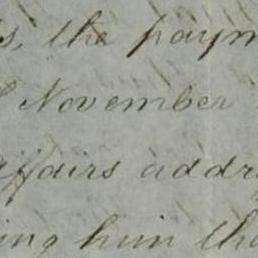 s, the paym
November
affairs addr
ing him tha